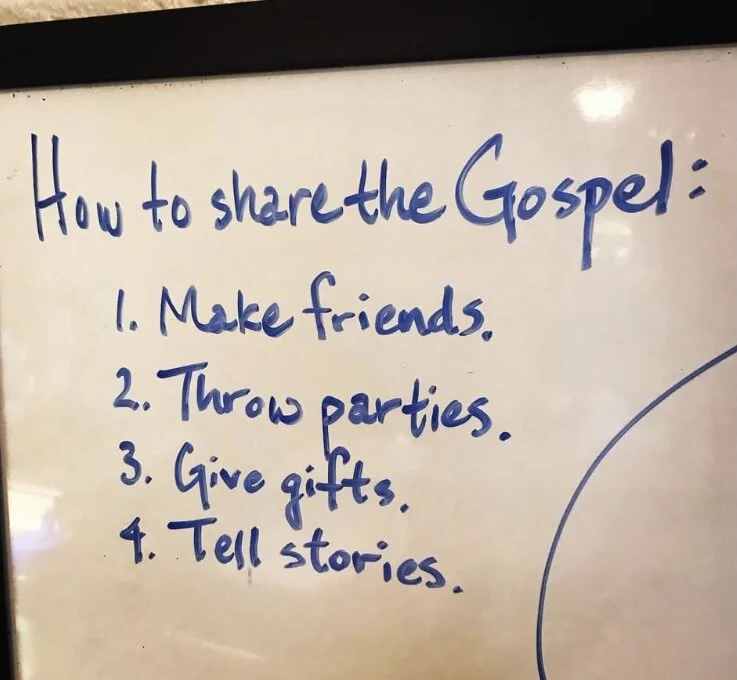 How to share the Gospel:
1. Make friends.
2. Throw parties.
3. Give gifts.
4. Tell stories.